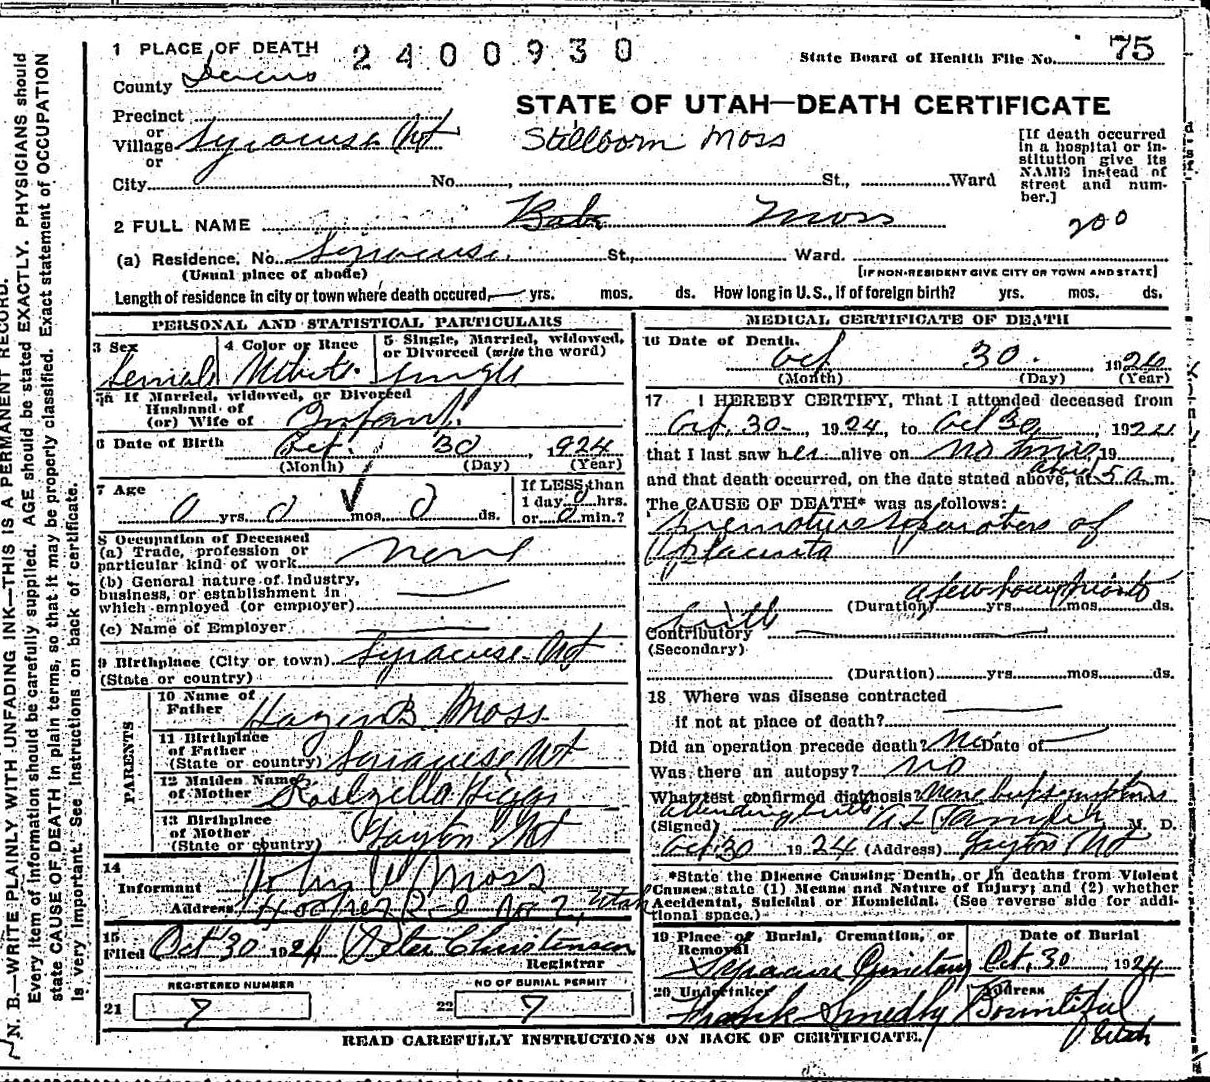 1 PLACE OF DEATH
2400930
State Board of Health File No. 75
County Davis
STATE OF UTAH—DEATH CERTIFICATE
Precinct
or
Village Syracuse Ut
Stillborn Moss
[If death occurred in a hospital or in-
stitution give its
NAME instead of
street and num-
ber.]
or
City No. , St., Ward
2 FULL NAME Baby Moss
200
(a) Residence, No. Syracuse. St., Ward.
(Usual place of abode)
[IF NON-RESIDENT GIVE CITY OR TOWN AND STATE]
Length of residence in city or town where death occured, — yrs. mos. ds. How long in U. S., if of foreign birth? yrs. mos. ds.
PERSONAL AND STATISTICAL PARTICULARS
3 Sex 4 Color or Race 5 Single, Married, widowed,
or Divorced (write the word)
Female White. Single
5a If Married, widowed, or Divorced
Husband of
(or) Wife of Infant
6 Date of Birth Oct. 30 , 1924
(Month) (Day) (Year)
7 Age If LESS than
1 day, 0 hrs.
0 yrs. 0 mos. 0 ds. or 0 min.?
8 Occupation of Deceased
(a) Trade, profession or
particular kind of work None
(b) General nature of industry,
business, or establishment in
which employed (or employer)
(c) Name of Employer
9 Birthplace (City or town) Syracuse Ut
(State or country)
PARENTS
10 Name of
Father Hazen B Moss
11 Birthplace
of Father
(State or country) Syracuse Ut
12 Maiden Name
of Mother Higgs
13 Birthplace
of Mother
(State or country) Layton Ut
14
Informant John Moss
Address Hooper R-1 No 2, Utah
15
Filed Oct 30 1924 Peter Christensen
Registrar
REGISTERED NUMBER NO OF BURIAL PERMIT
21 7 22 7
MEDICAL CERTIFICATE OF DEATH
16 Date of Death.
Oct 30. 1924
(Month) (Day) (Year)
17 I HEREBY CERTIFY, That I attended deceased from
Oct. 30 , 1924, to Oct 30 , 1924
that I last saw her alive on no time 19 ,
and that death occurred, on the date stated above, at about 5 a. m.
The CAUSE OF DEATH* was as follows:
Premature separation of
placenta
a few hours prior to
(Duration) yrs. mos. ds.
birth
Contributory
(Secondary)
(Duration) yrs. mos. ds.
18 Where was disease contracted
if not at place of death?
Did an operation precede death? No Date of
Was there an autopsy? No
What test confirmed diagnosis? None but symptoms
attending birth
(Signed) M. D.
Oct 30 1924 (Address) Layton Ut
*State the Disease Causing Death, or in deaths from Violent
Causes, state (1) Means and Nature of Injury; and (2) whether
Accidental, Suicidal or Homicidal. (See reverse side for addi-
tional space.)
19 Place of Burial, Cremation, or
Removal Date of Burial
Syracuse Cemetary Oct. 30 1924
20 Undertaker Address
Frank Smedly Bountiful
Utah
READ CAREFULLY INSTRUCTIONS ON BACK OF CERTIFICATE.
N. B.—WRITE PLAINLY WITH UNFADING INK—THIS IS A PERMANENT RECORD.
Every item of information should be carefully supplied. AGE should be stated EXACTLY. PHYSICIANS should
state CAUSE OF DEATH in plain terms, so that it may be properly classified. Exact statement of OCCUPATION
is very important. See instructions on back of certificate.